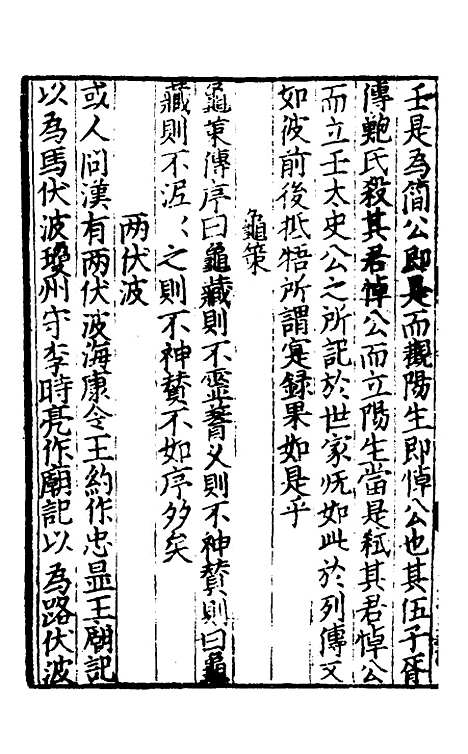 壬是為簡公即是而觀陽生即悼公也其伍子胥
傳鮑氏殺其君悼公而立陽生當是弒其君悼公
而立壬太史公之所記於世家旣如此於列傳又
如彼前後抵牾所謂寔録果如是乎
龜策
龜策傳序曰龜藏則不靈蓍乆則不神賛則曰龜
藏則不泥〻之則不神賛不如序多矣
两伏波
或人問漢有两伏波海康令王約作忠显王廟記
以為馬伏波瓊州守李時亮作廟記以為路伏波